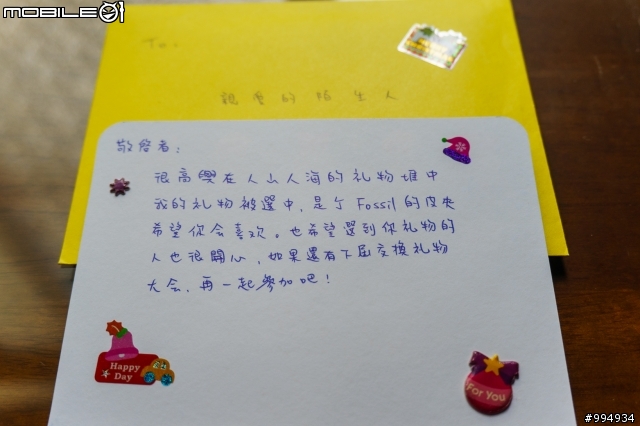 MOBILE01
To:
親愛的陌生人
敬啓者:
很高興在人山人海的礼物堆中
我的礼物被選中,是个Fossil的皮夾
希望你会喜欢。也希望選到你礼物的
人也很開心,如果還有下屆交換礼物
大会,再一起參加吧!
Happy
Day
For You
#994934